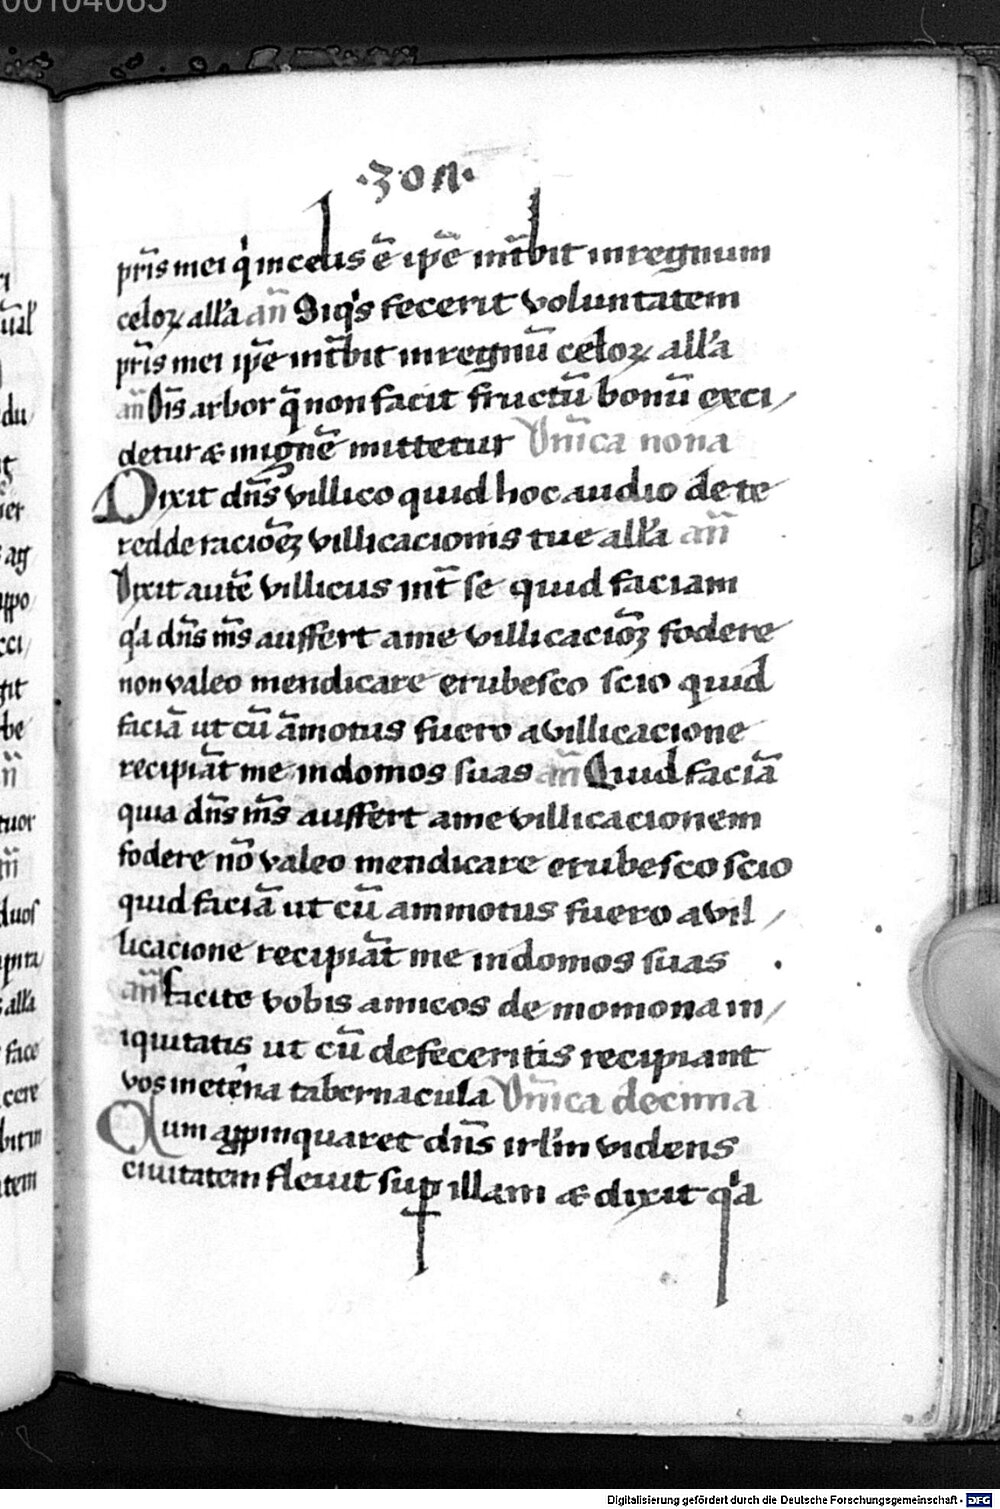 00104065
·301·
pr̄is mei q̇ in celis ē ip̄e int̄bit in regnum
celoꝝ all'a an̄ Siq's fecerit voluntatem
pr̄is mei ip̄e int̄bit in regnū celoꝝ all'a
an̄ Oīs arbor q̄ non facit fructū bonū exci/
detur ⁊ in ignē mittetur Dn̄ica nona
Dixit dn̄s villico quid hoc audio de te
redde racioēꝫ villicacionis tue all'a an̄
Dixit autē villicus int̄ se quid faciam
q'a dn̄s m̄s auffert a me villicaciōꝫ fodere
non valeo mendicare erubesco scio quid
faciā ut cū āmotus fuero a villicacione
recipiāt me in domos suas an̄ Quid faciā
quia dn̄s m̄s auffert a me villicacionem
fodere nō valeo mendicare erubesco scio
quid faciā ut cū ammotus fuero a vil/
licacione recipiāt me in domos suas
an̄ facite vobis amicos de momona in/
iquitatis ut cū defeceritis recipiant
vos in et'na tabernacula Dn̄ica decima
Qum appinquaret dn̄s irl'm videns
civitatem flevit suꝑ illam ⁊ dixit q'a
Digitalisierung gefördert durch die Deutsche Forschungsgemeinschaft - DFG